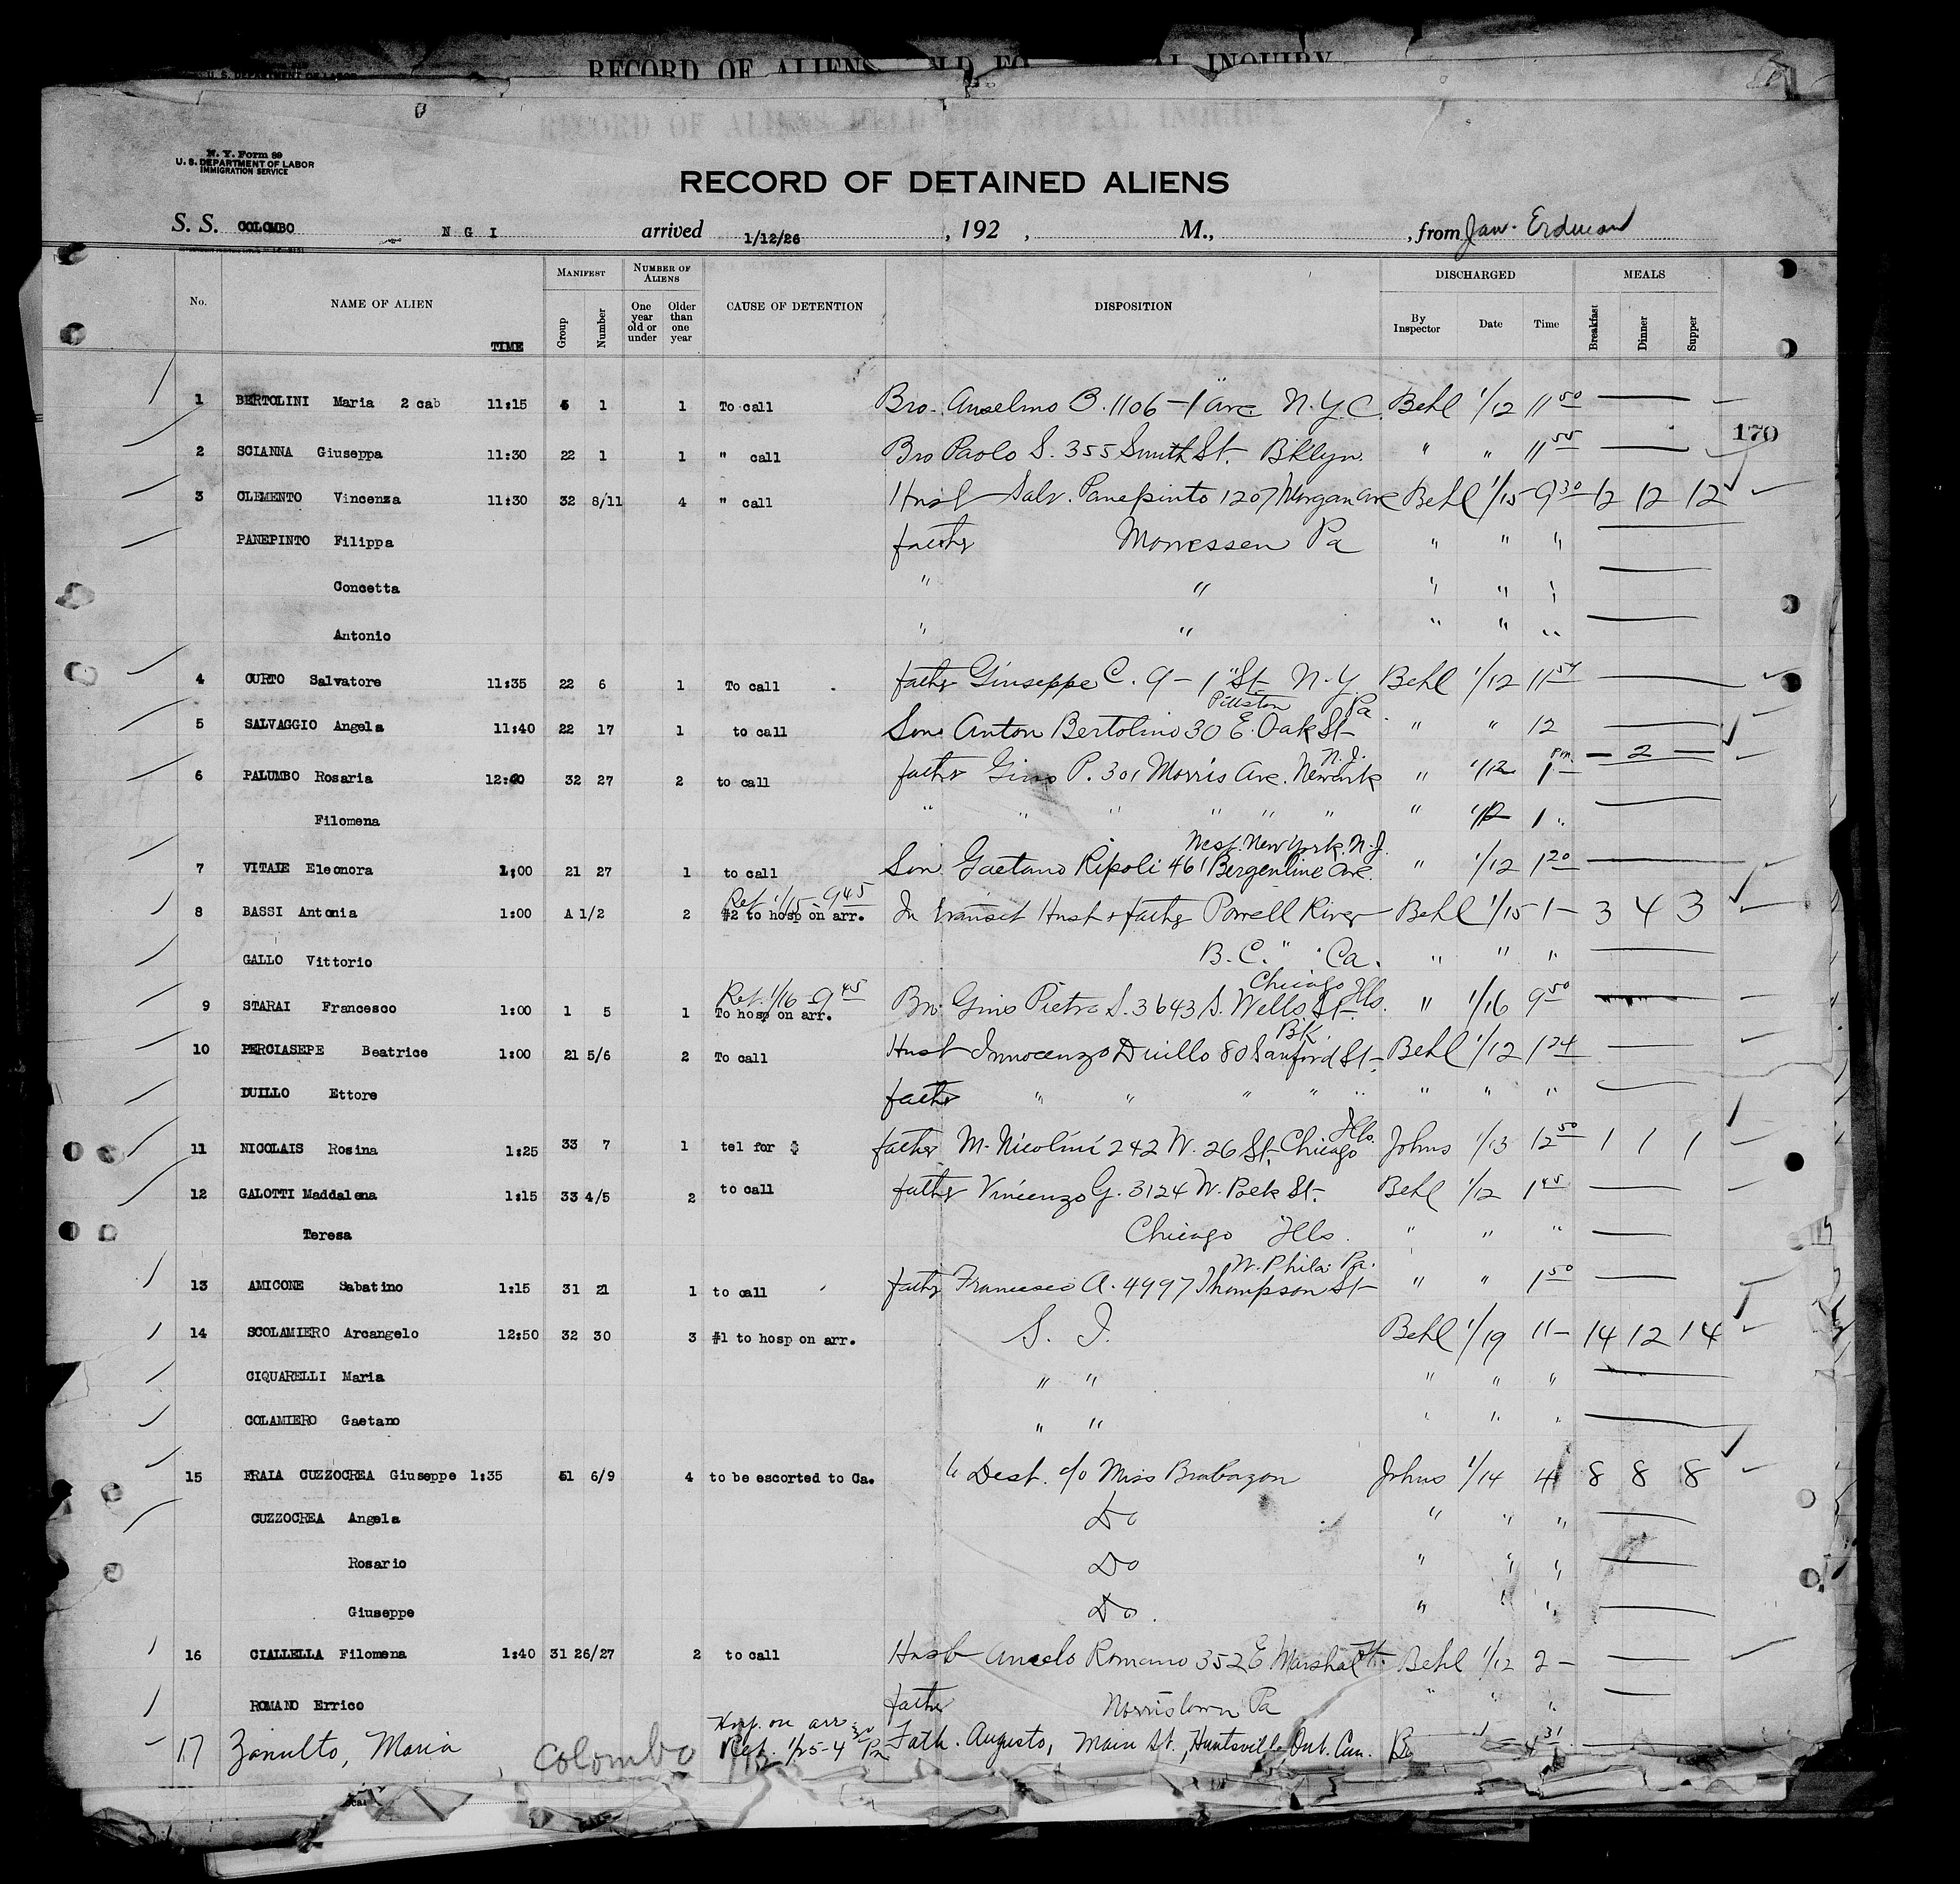 N. Y. Form 89
U. S. DEPARTMENT OF LABOR
IMMIGRATION SERVICE
RECORD OF DETAINED ALIENS
S. S. COLOMBO N G I arrived 1/12/26, 192 , M., , from Jan. Erdman
No. NAME OF ALIEN TIME MANIFEST Group Number NUMBER OF ALIENS One year old or under Older than one year CAUSE OF DETENTION DISPOSITION DISCHARGED By Inspector Date Time MEALS Breakfast Dinner Supper
1 BERTOLINI Maria 2 cab 11:15 5 1 1 To call Bro. Anselmo B. 1106 - 1" Ave N.Y.C. Behl 1/12 11 50
170
2 SCIANNA Giuseppa 11:30 22 1 1 " call Bro Paolo S. 355 Smith St. Bklyn. " " 11 55
3 CLEMENTO Vincenza 11:30 32 8/11 4 " call Husb Salv. Panepinto 1207 Morgan Ave Behl 1/15 9 30 12 12 12
PANEPINTO Filippa father Monessen Pa " " "
Concetta " " " " "
Antonio " " " " "
4 CURTO Salvatore 11:35 22 6 1 To call father Giuseppe C. 9 - 1" St N.Y. Behl 1/12 11 54
Pittston Pa
5 SALVAGGIO Angela 11:40 22 17 1 to call Son Anton Bertolino 30 E. Oak St " " 12
N.J.
6 PALUMBO Rosaria 12:40 32 27 2 to call father Gino P. 301 Morris Ave. Newark " 1/12 1 pm — 2 —
Filomena " " " " " " " 1/12 1 "
West New York, N.J.
7 VITALE Eleonora 1:00 21 27 1 to call Son Gaetano Ripoli 461 Bergenline Ave. " 1/12 1 20
Ret. 1/15 - 9 45
8 BASSI Antonia 1:00 A 1/2 2 #2 to hosp on arr. In transit Husb & father Powell River Behl 1/15 1 — 3 4 3
GALLO Vittorio B.C. " " Ca. " " "
Ret. 1/16 - 9 45 Chicago Ills.
9 STARAI Francesco 1:00 1 5 1 To hosp on arr. Bro. Gino Pietro S. 3643 S. Wells St. " 1/16 9 50
Bk.
10 PERCIASEPE Beatrice 1:00 21 5/6 2 To call Husb Innocenzo Duillo 80 Sanford St. Behl 1/12 1 24
DUILLO Ettore father " " " " " " " "
Ills.
11 NICOLAIS Rosina 1:25 33 7 1 tel for $ father M. Nicolini 242 W. 26 St. Chicago Johns 1/13 12 50 1 1 1
12 GALOTTI Maddalena 1:15 33 4/5 2 to call father Vincenzo G. 3124 W. Polk St. Behl 1/12 1 45
Teresa Chicago Ills. " " "
W. Phila. Pa.
13 AMICONE Sabatino 1:15 31 21 1 to call father Francesco A. 4997 Thompson St " " 1 50
14 SCOLAMIERO Arcangelo 12:50 32 30 3 #1 to hosp on arr. S. I. Behl 1/19 11 — 14 12 14
CIQUARELLI Maria " " " " "
COLAMIERO Gaetano " " " " "
15 FRAIA CUZZOCREA Giuseppe 1:35 51 6/9 4 to be escorted to Ca. to Dest. c/o Miss Brabazon Johns 1/14 4 8 8 8
CUZZOCREA Angela Do " " "
Rosario Do " " "
Giuseppe Do. " " "
16 CIALLELLA Filomena 1:40 31 26/27 2 to call Husb Angelo Romano 352 E Marshall St. Behl 1/12 2 —
ROMANO Errico father Norristown Pa " " "
Hosp. on arr
17 Zanulto, Maria Colombo Ret. 1/25 - 4 30 Pm Fath. Augusto, Main St., Huntsville Ont. Can. 4 31